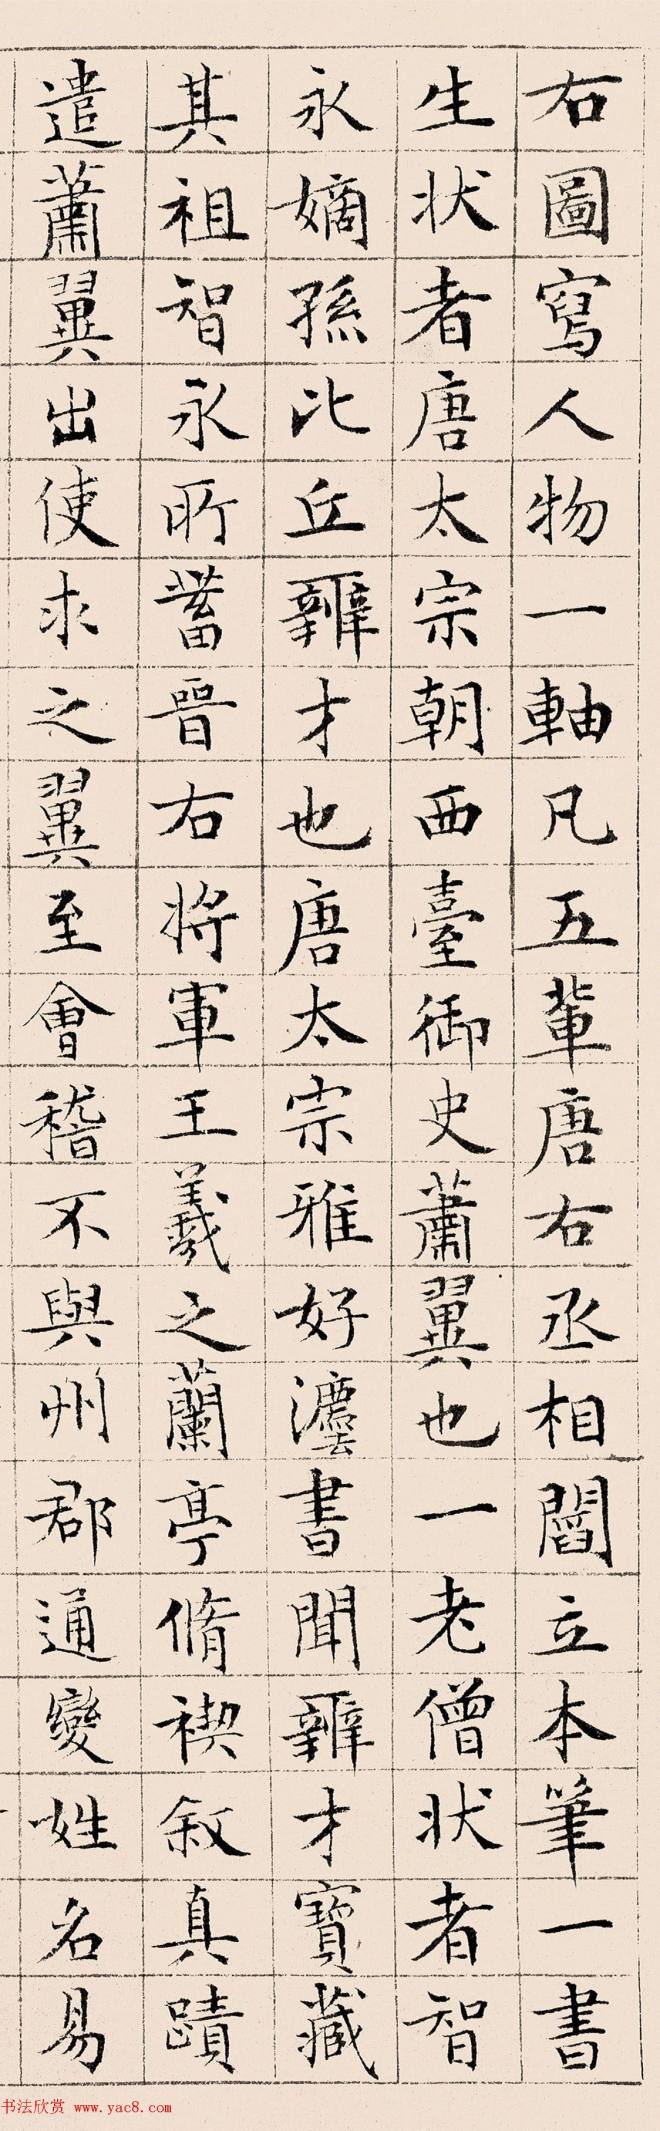 右圖寫人物一軸凡五輩唐右丞相閻立本筆一書
生狀者唐太宗朝西臺御史蕭翼也一老僧狀者智
永嫡孫比丘辯才也唐太宗雅好灋書聞辯才寶藏
其祖智永所蓄晉右將軍王羲之蘭亭脩禊敘真蹟
遣蕭翼出使求之翼至會稽不與州郡通變姓名易
书法欣赏 www.yac8.com